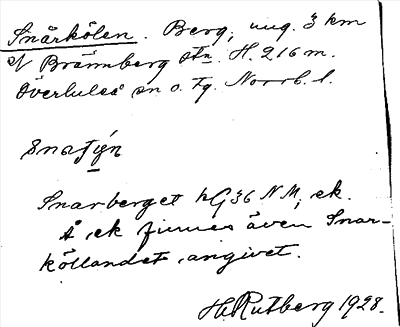 Snårkölen. Berg, ung. 3 km
v Brännberg stn. H. 216 m.
Överluleå sn o. tg. Norrb. l.
Snarberget hG 36 NM, ek.
Å ek finnes även Snar-
köllandet angivet.
H. Rutberg 1928.